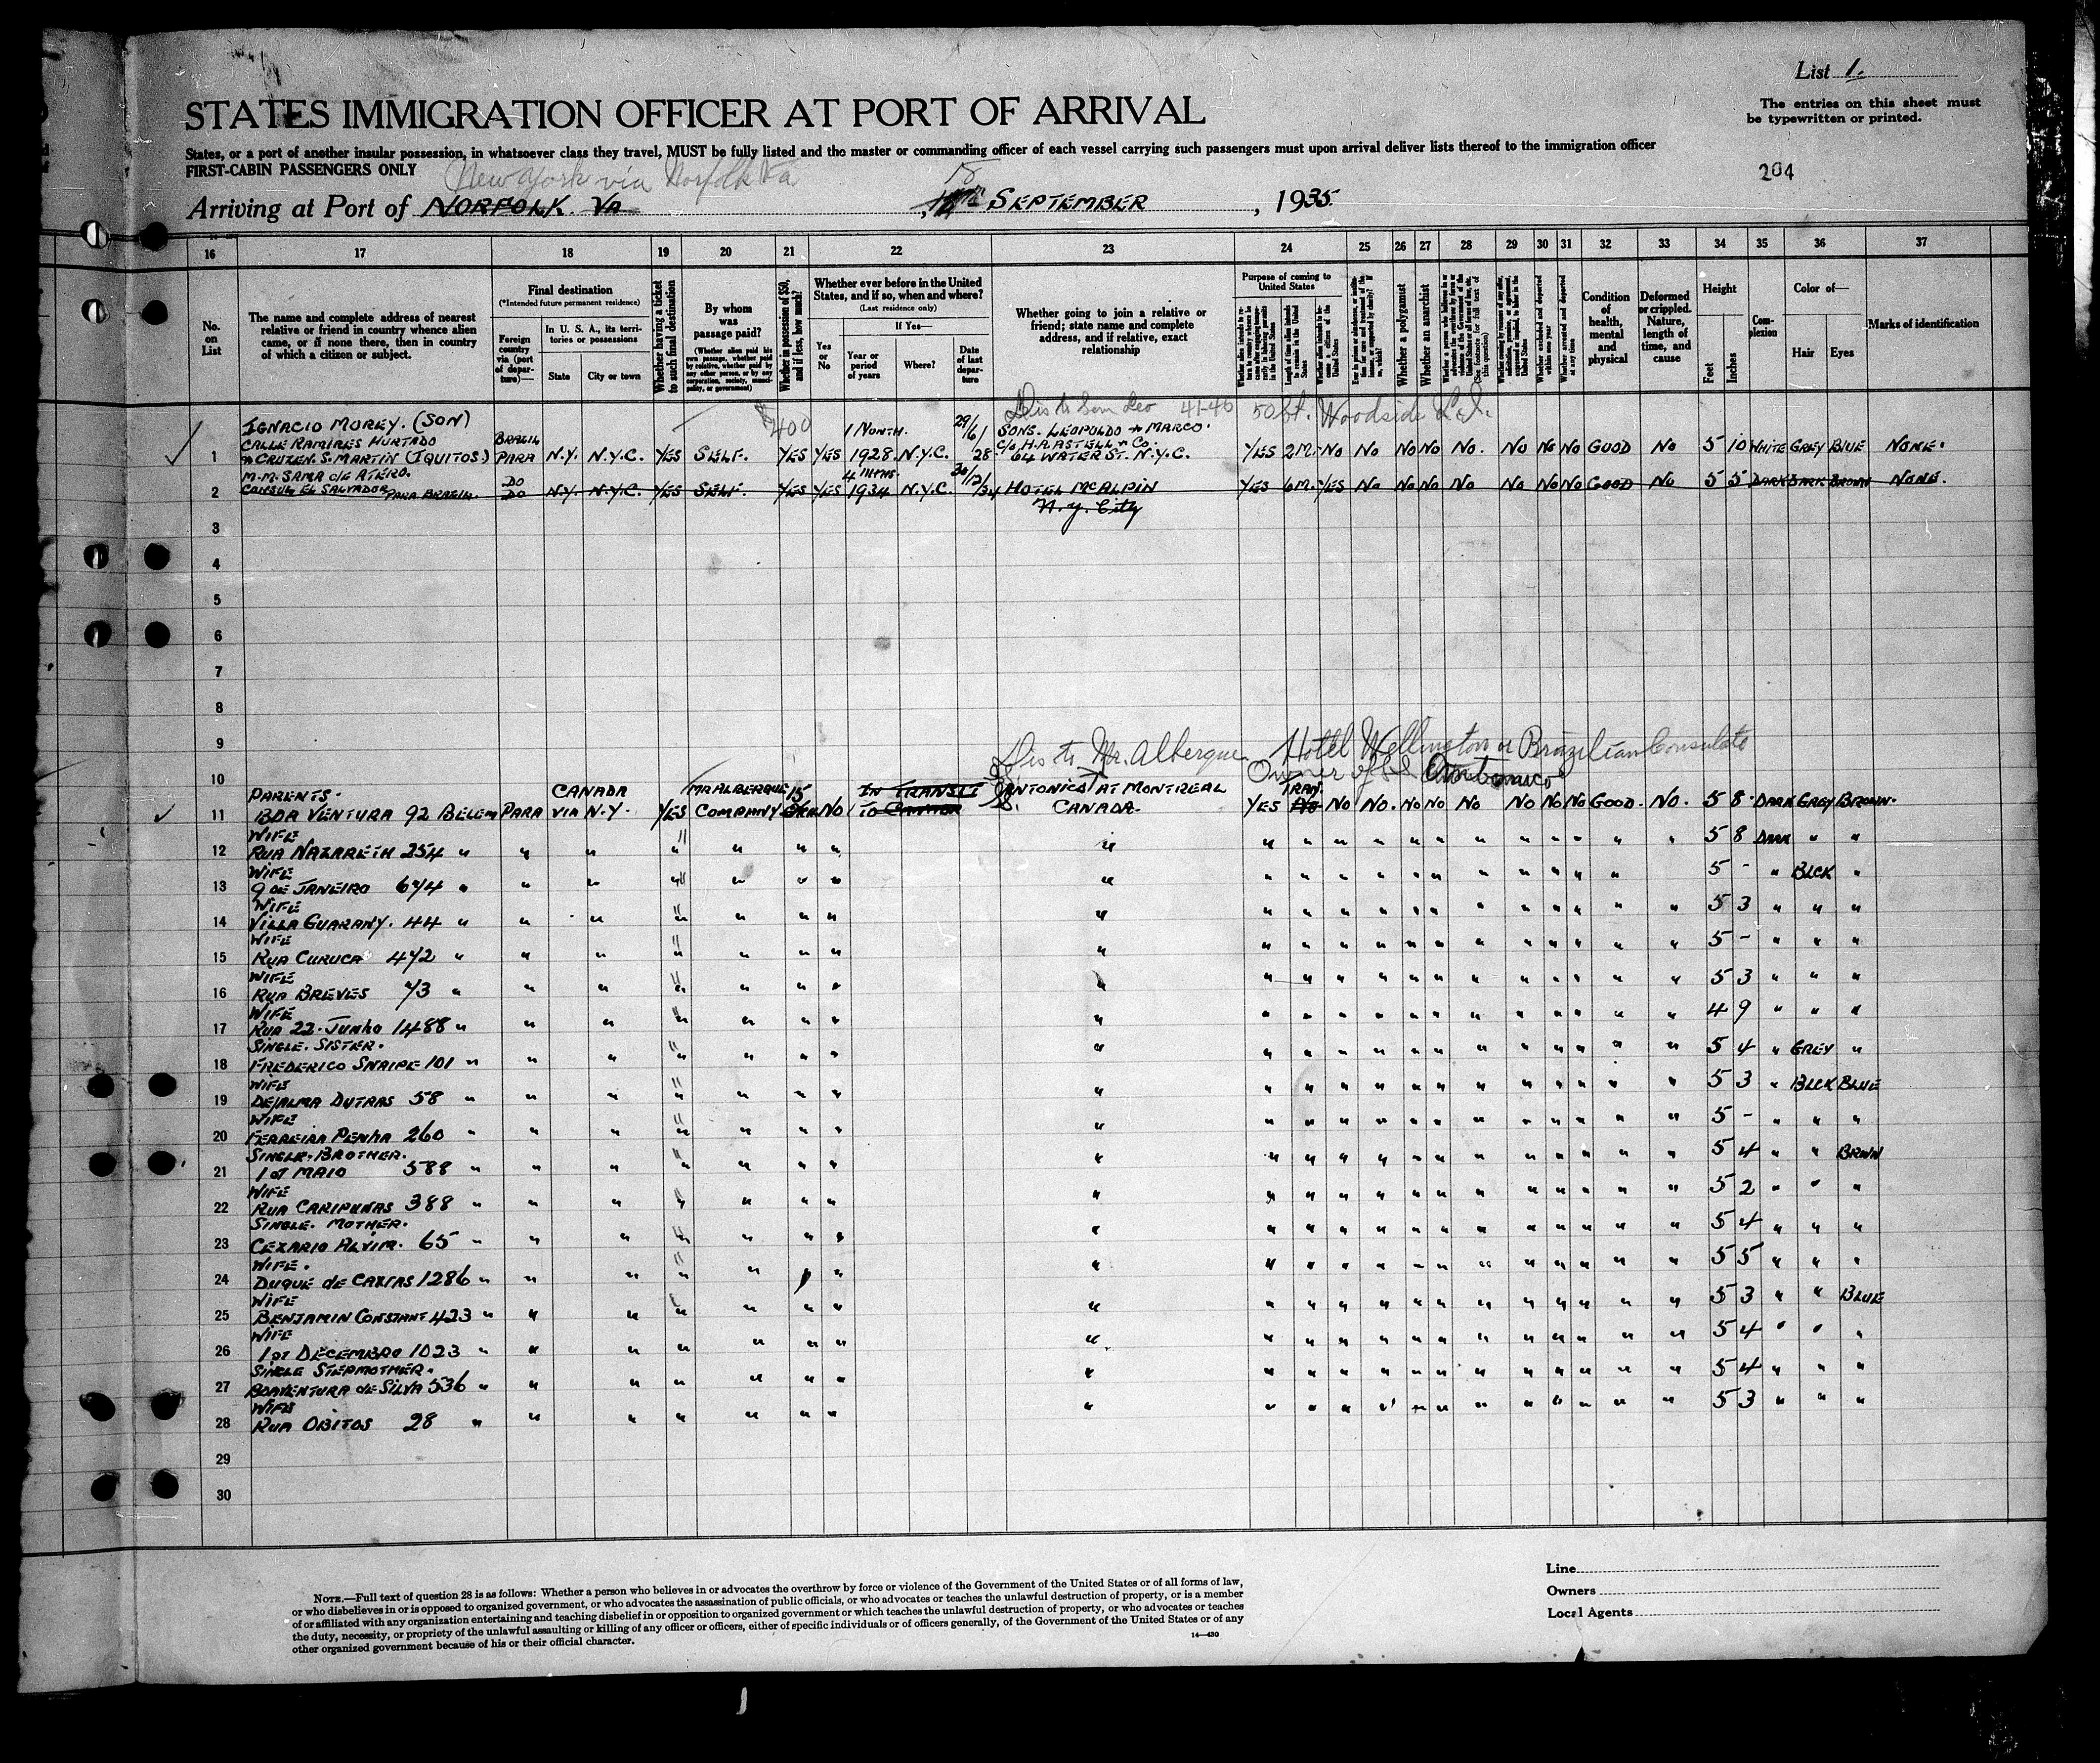 List 1.
STATES IMMIGRATION OFFICER AT PORT OF ARRIVAL
The entries on this sheet must
be typewritten or printed.
States, or a port of another insular possession, in whatsoever class they travel, MUST be fully listed and the master or commanding officer of each vessel carrying such passengers must upon arrival deliver lists thereof to the immigration officer
FIRST-CABIN PASSENGERS ONLY
New York via Norfolk Va
204
Arriving at Port of NORFOLK. VA , SEPTEMBER , 1935
16 17 18 19 20 21 22 23 24 25 26 27 28 29 30 31 32 33 34 35 36 37
No. on List
The name and complete address of nearest
relative or friend in country whence alien
came, or if none there, then in country
of which a citizen or subject.
Final destination
(*Intended future permanent residence)
Foreign country via (port of departure)—
In U. S. A., its territories or possessions
State
City or town
Whether having a ticket to such final destination
By whom was passage paid?
(Whether alien paid his own passage, whether paid by relative, whether paid by any other person, or by any corporation, society, municipality, or government)
Whether in possession of $50, and if less, how much?
Whether ever before in the United
States, and if so, when and where?
(Last residence only)
Yes or No
If Yes—
Year or period of years
Where?
Date of last departure
Whether going to join a relative or
friend; state name and complete
address, and if relative, exact
relationship
Purpose of coming to United States
Length of time alien intends to remain in the United States
Whether a polygamist
Whether an anarchist
(See footnote for full text of this question)
Whether arrested and deported at any time
Condition of health, mental and physical
Deformed or crippled. Nature, length of time, and cause
Height
Feet
Inches
Complexion
Color of—
Hair
Eyes
Marks of identification
$400
Dis to Son Leo 41-46 50 St. Woodside L.I.
IGNACIO MOREY. (SON)
CALLE RAMIRES HURTADO
1 CRUZEN. S. MARTIN (IQUITOS) BRAZIL PARA N.Y. N.Y.C. YES SELF. YES YES 1 MONTH. 1928 N.Y.C. 29/6/28 SONS. LEOPOLDO + MARCO. C/o H.A. ASTELL + Co. 64 WATER ST. N.Y.C. YES 2M. NO NO NO NO NO. NO NO NO GOOD NO 5 10 WHITE GREY BLUE NONE.
M.M. SAMA
2 CONSUL EL SALVADOR PARA BRAZIL. DO DO N.Y. N.Y.C. YES SELF. YES YES 4 MTHS. 1934 N.Y.C. HOTEL MCALPIN YES 6M. YES NO NO NO NO NO NO NO GOOD NO 5 5 DARK DARK BROWN NONE.
N.Y. City
3
4
5
6
7
8
9
Dis to Mr. Alberque Hotel Wellington or Brazilian Consulate
10 Owner of
PARENTS. CANADA MR ALBERQUE 15 IN TRANSIT ANTONICO AT MONTREAL TRAN.
11 BOA VENTURA 92 BELEM PARA VIA N.Y. YES COMPANY NO TO CANADA CANADA. YES NO NO NO. NO NO NO NO NO NO GOOD. NO. 5 8. DARK GREY BROWN.
WIFE
12 RUA NAZARETH 254 " 5 8 DARK " "
WIFE
13 9 DE JANEIRO 674 " 5 - " BLCK "
WIFE
14 VILLA GUARANY. 44 " 5 3 " " "
WIFE
15 RUA CURUCA 472 " 5 - " " "
WIFE
16 RUA BREVES 73 " 5 3 " " "
WIFE
17 RUA 22. JUNHO 1488 " 4 9 " " "
SINGLE. SISTER.
18 FREDERICO SNAIPE 101 " 5 4 " GREY "
WIFE
19 DEJALMA DUTRAS 58 " 5 3 " BLCK BLUE
WIFE
20 FERREIRA PENHA 260 " 5 - " " "
SINGLE. BROTHER.
21 1ST MAIO 588 " 5 4 " " BRWN
WIFE
22 RUA CARIPUNAS 388 " 5 2 " " "
SINGLE. MOTHER.
23 CEZARIO ALVIM. 65 " 5 4 " " "
WIFE.
24 DUQUE de CAXIAS 1286 " 5 5 " " "
WIFE
25 BENJAMIN CONSTANT 423 " 5 3 " " BLUE
WIFE
26 1ST DECEMBRO 1023 " 5 4 " " "
SINGLE STEPMOTHER.
27 BOAVENTURA de SILVA 536 " 5 4 " " "
WIFE
28 RUA OBITOS 28 " 5 3 " " "
29
30
Line
Owners
Local Agents
NOTE.—Full text of question 28 is as follows: Whether a person who believes in or advocates the overthrow by force or violence of the Government of the United States or of all forms of law,
or who disbelieves in or is opposed to organized government, or who advocates the assassination of public officials, or who advocates or teaches the unlawful destruction of property, or is a member
of or affiliated with any organization entertaining and teaching disbelief in or opposition to organized government or which teaches the unlawful destruction of property, or who advocates or teaches
the duty, necessity, or propriety of the unlawful assaulting or killing of any officer or officers, either of specific individuals or of officers generally, of the Government of the United States or of any
other organized government because of his or their official character.
14—430